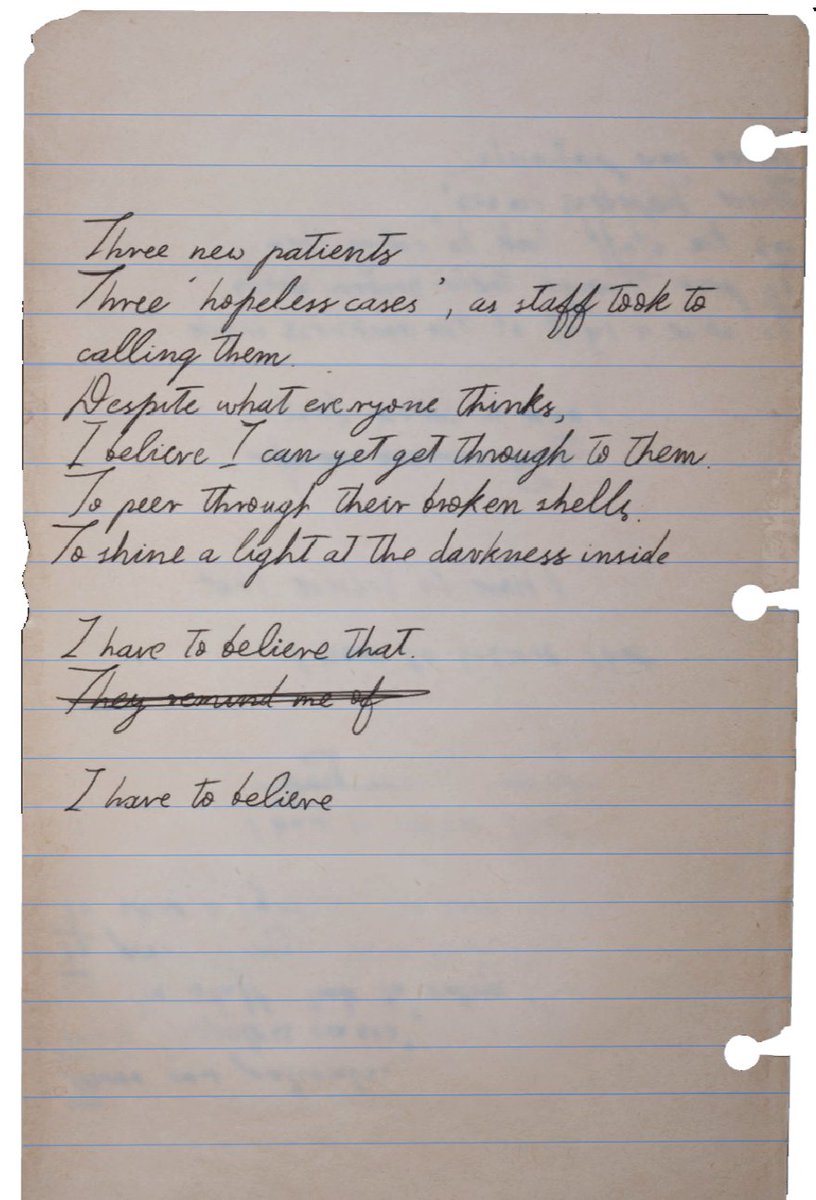 Three new patients
Three 'hopeless cases', as staff took to
calling them.
Despite what everyone thinks,
I believe I can yet get through to them.
To peer through their broken shells.
To shine a light at the darkness inside
I have to believe that.
They remind me of
I have to believe